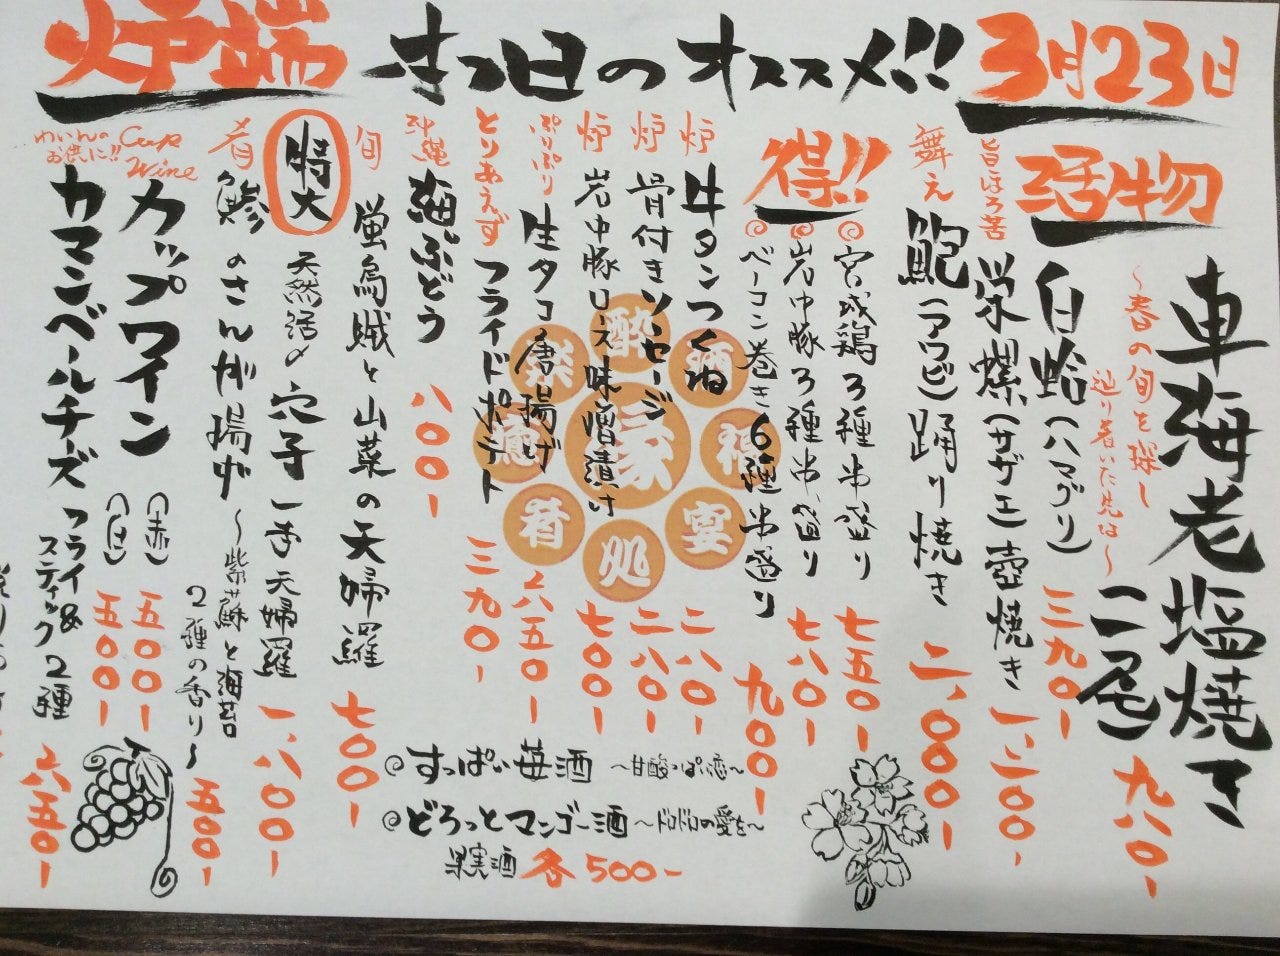 炉端
本日のオススメ!!
3月23日
活物
車海老塩焼き
(二尾)
九八〇-
〜春の旬を探し
辿り着いた先は〜
白蛤(ハマグリ)
三九〇-
旨ほろ苦
栄螺(サザエ)壺焼き
一、二〇〇-
舞え
鮑(アワビ)踊り焼き
二、〇〇〇-
得!!
宮城鶏3種串盛り
七五〇-
岩中豚3種串盛り
七八〇-
ベーコン巻き6種串盛り
九〇〇-
炉
牛タンつくね
二八〇-
炉
骨付きソーセージ
二八〇-
炉
岩中豚ロース味噌漬け
七〇〇-
ぷりぷり
生タコ唐揚げ
六五〇-
とりあえず
フライドポテト
三九〇-
沖縄
海ぶどう
八〇〇-
旬
蛍烏賊と山菜の天婦羅
七〇〇-
特大
天然活〆穴子一本天婦羅
一、八〇〇-
肴
鯵のさんが揚げ
〜紫蘇と海苔
2種の香り〜
五〇〇-
Cup
Wine
カップワイン
(赤)
五〇〇-
(白)
五〇〇-
わいんの
お供に!!
カマンベールチーズ
フライ&
スティック2種
六五〇-
すっぱい苺酒
〜甘酸っぱい恋〜
どろっとマンゴー酒
〜ドロドロの愛を〜
果実酒
各500-
縁
酔
酒
福
宴
処
肴
癒
楽